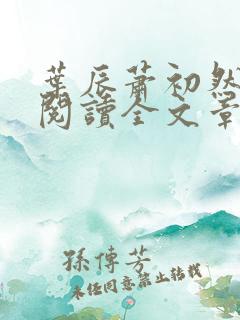 葉辰蕭初然
閱讀全文章
孫傳芳
未經同意禁止轉載